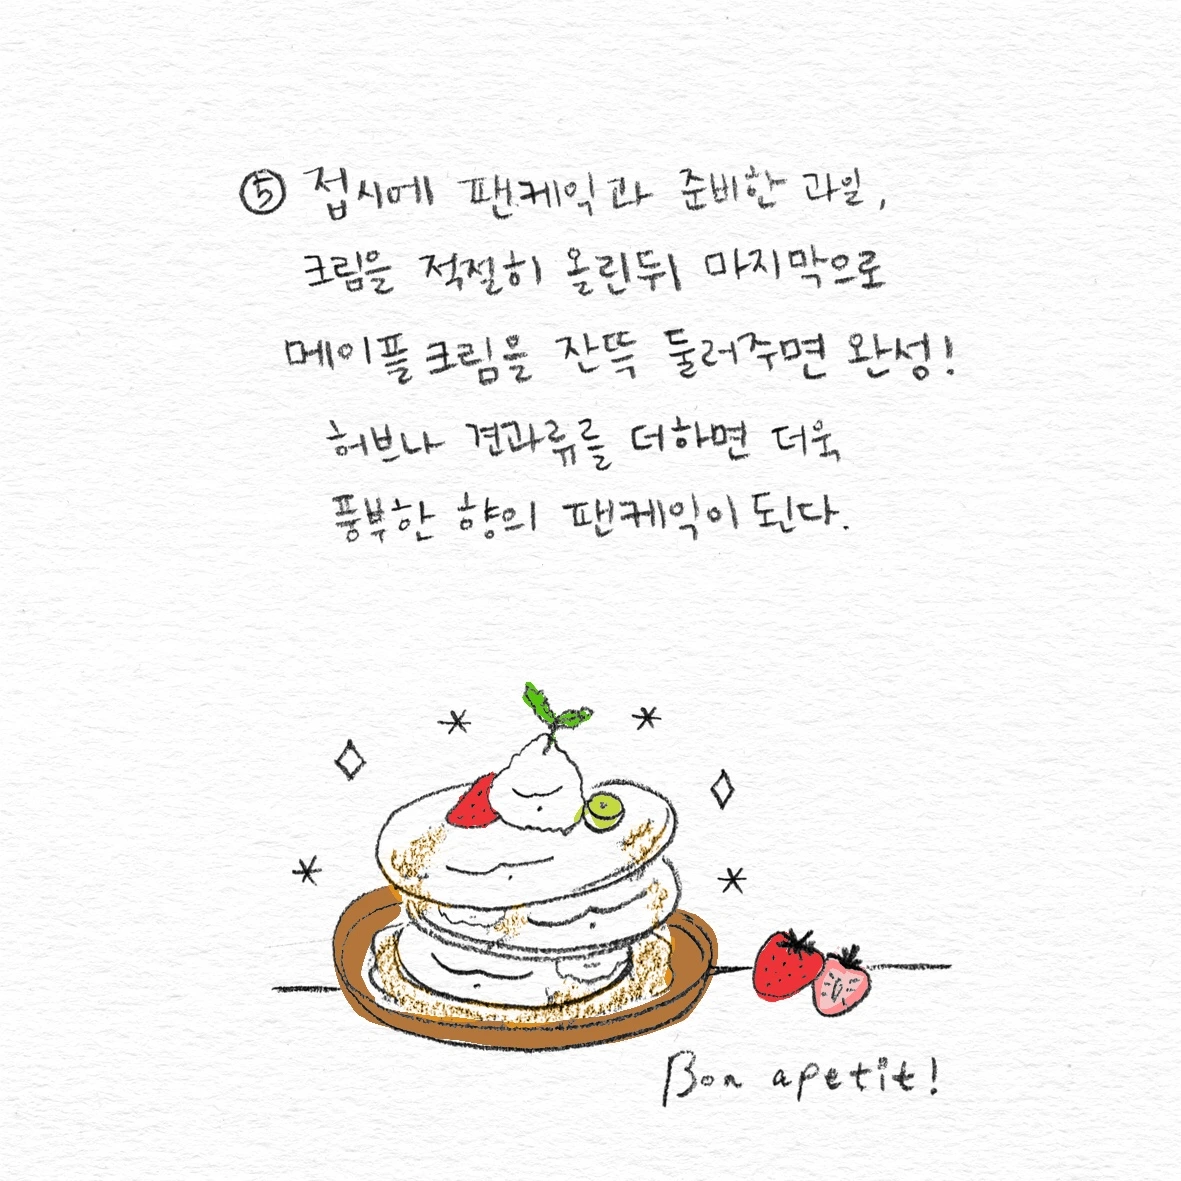 ⑤ 접시에 팬케익과 준비한 과일,
크림을 적절히 올린뒤 마지막으로
메이플크림을 잔뜩 둘러주면 완성!
허브나 견과류를 더하면 더욱
풍부한 향의 팬케익이 된다.
Bon apetit!